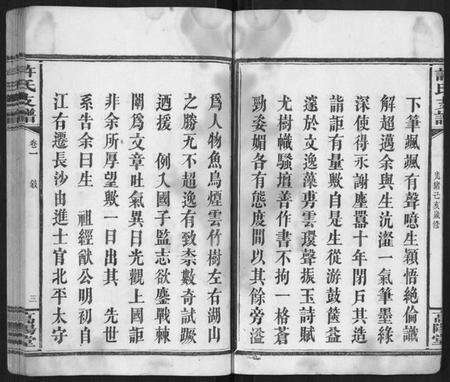 許氏支譜
光緒己亥歲修
高陽堂
下筆颯颯有聲噫生穎悟絶倫識
解超邁余與生沆瀣一氣筆墨綠
深使得永謝塵囂十年閉戶其造
詣詎有量歟自是生從游鼓篋益
邃於文逸藻雲環聲振玉詩賦
尤樹幟騷壇善作書不拘一格蒼
勁委媚各有態度間以其餘旁溢
爲人物魚鳥煙雲竹樹左右湖山
之勝尤不超逸有致柰數奇試蹶
迺援 例入國子監志欲鏖戰棘
闈爲文章吐氣異日光觀上國詎
非余所厚望歟一日出其 先世
系告余曰生 祖經猷公明初自
江右遷長沙由進士官北平太守
許氏支譜
卷一
敘
三
高陽堂